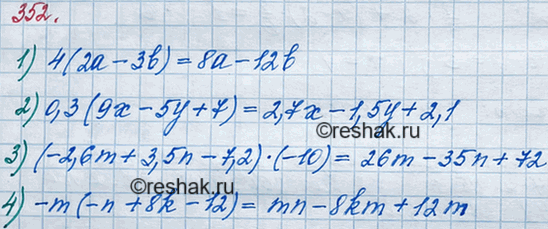 352.
1) 4(2a-3b)=8a-12b
2) 0,3(9x-5y+7)=2,7x-1,5y+2,1
©reshak.ru
3) (-2,6m+3,5n-7,2)·(-10)=26m-35n+72
©reshak.ru
4) -m(-n+8k-12)=mn-8km+12m